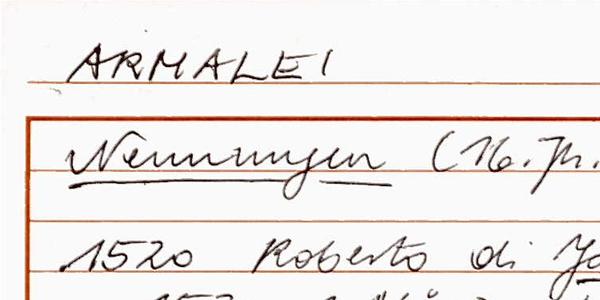 ARMALEI
Nennungen (16. Jh.
1520 Roberto di